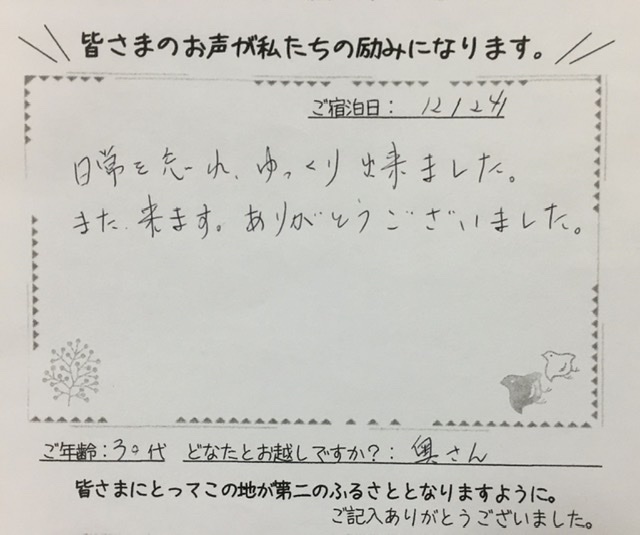 皆さまのお声が私たちの励みになります。
ご宿泊日： 12/24
日常を忘れ、ゆっくり出来ました。
また、来ます。ありがとうございました。
ご年齢：30代 どなたとお越しですか？：奥さん
皆さまにとってこの地が第二のふるさととなりますように。
ご記入ありがとうございました。